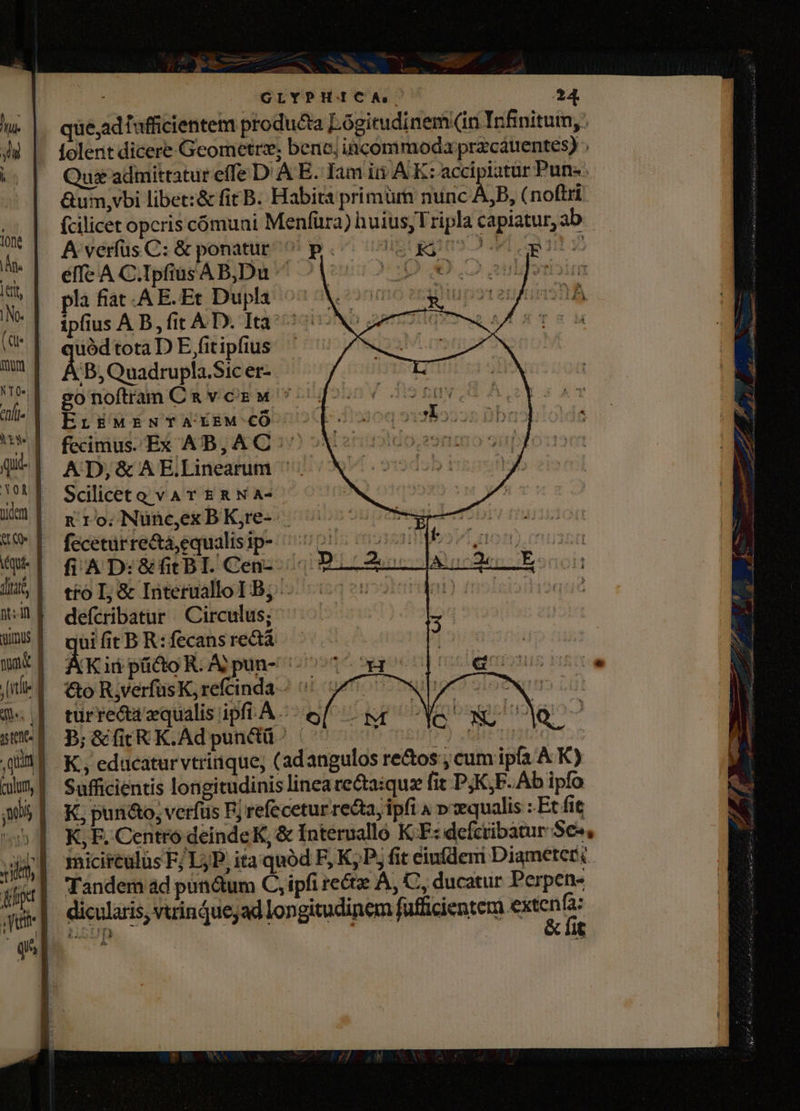 GLYPHICA. 24
que,ad ſufficientem producta Lõgitudinem (in Infinitum,
ſolent dicere Geometræ, bene, incommoda præcauentes)
Quæ admittatur eſſe D A E. Iam in A K: accipiatur Pun-
ctum,vbi libet: & fit B. Habita primùm nunc A,B, (noſtri
ſcilicet operis cõmuni Menſura) huius,Tripla capiatur,ab
A verſus C: & ponatur
eſſe A C. Ipſius A B,Du
pla fiat A E. Et Dupla
ipſius A B, fit A D. Ita
quòd tota D E, fit ipſius
A B, Quadrupla. Sic er-
go noſtram CRVCEM
ELEMENTALEM cõ
fecimus. Ex AB, AC
A D, & A E, Linearum
Scilicet QVATERNA-
RIO. Nunc,ex B K,re-
ſecetur recta,equalis ip-
ſi A D: & fit B I. Cen-
tro I, & Interuallo I B;
deſcribatur Circulus;
qui fit B R: ſecans rectã
A K in pũcto R. A pun-
cto R,verſus K, reſcinda
tur recta æqualis ipſi A
B; & fit R K. Ad punctũ
P K F
R
L
I
B
D 2 A 2 E
3
H G
O M C N Q
K, educatur vtrinque, (ad angulos rectos, cum ipſa A K)
Sufficientis longitudinis linea recta: quæ fit P,K,F. Ab ipſo
K, puncto, verſus F, reſecetur recta, ipſi A D æqualis : Et fit
K, F. Centro deinde K, & Interuallo K F: deſcribatur Se-
micirculus F, L, P, ita quòd F, K, P, fit eiuſdem Diameter:
Tandem ad punctum C, ipſi rectæ A, C, ducatur Perpen-
dicularis, vtrinque, ad longitudinem ſufficientem extenſa:
& fit